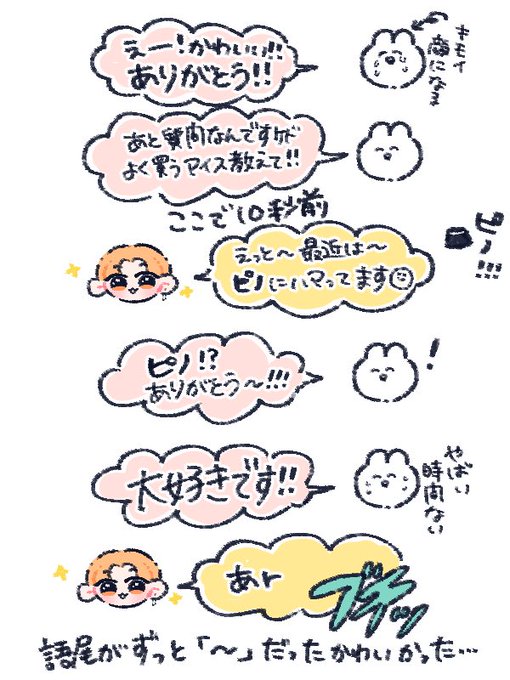 えー!かわいい!!
ありがとう!!
キモイ
癖になる
あと質問なんですけど
よく買うアイス教えて!!
ここで10秒前
えっと〜最近は〜
ピノにハマってます
ピノ!!!
ピノ!?
ありがとう〜!!!
!
大好きです!!
やばい
時間ない
あr
ブチッ
語尾がずっと「〜」だったかわいかった…